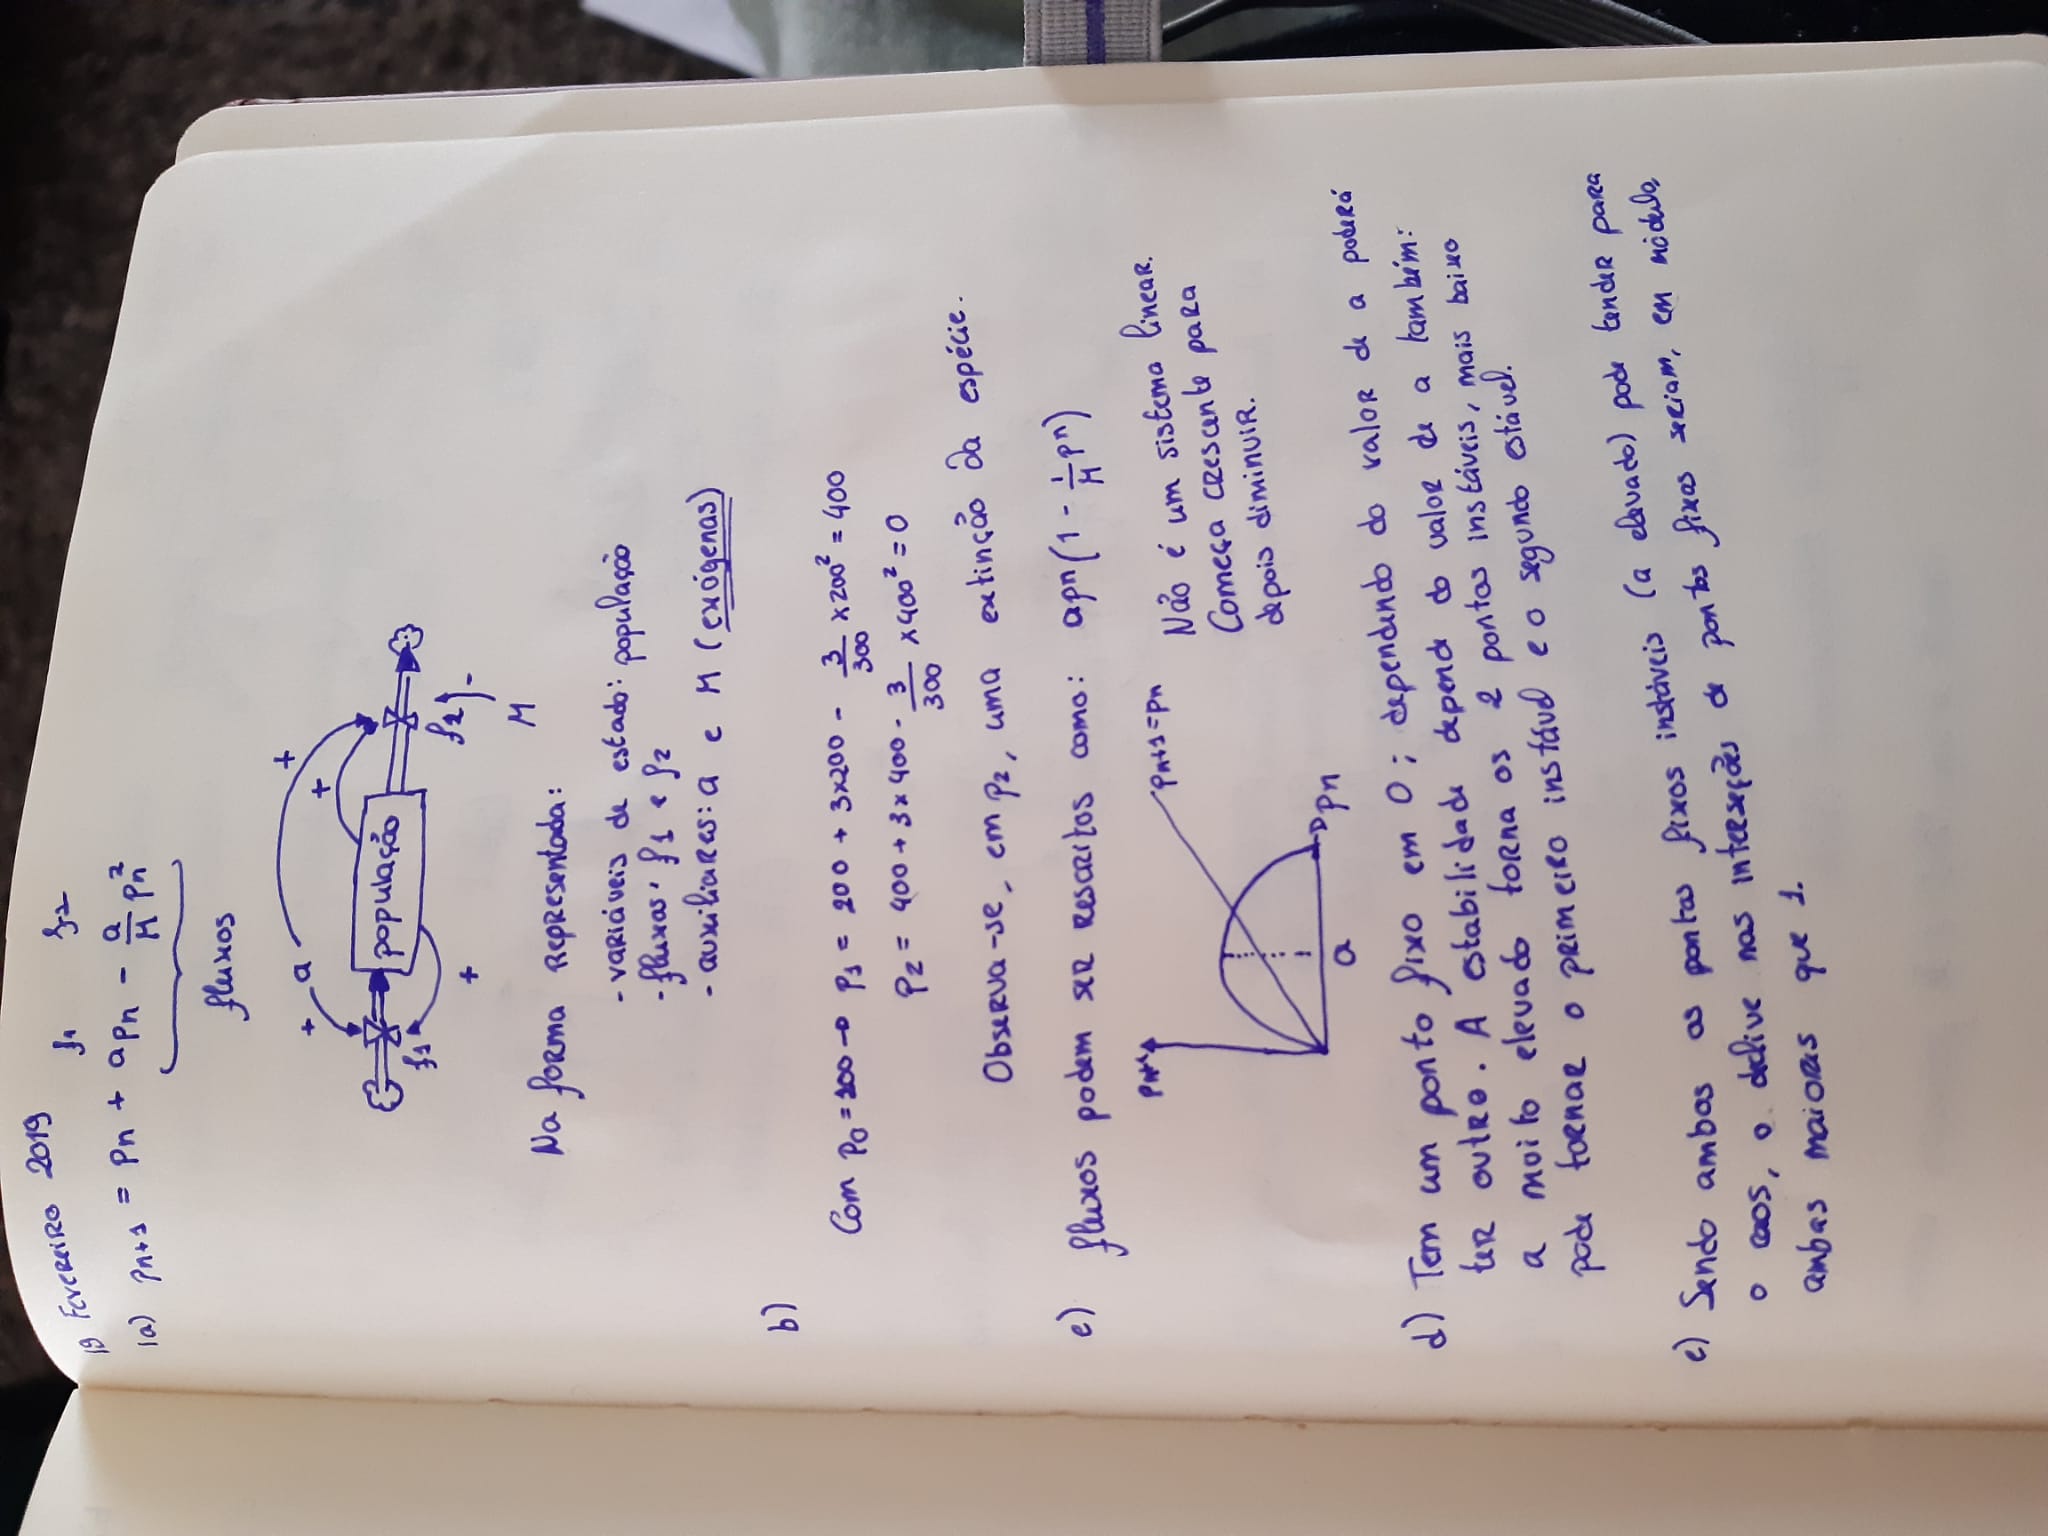 19 Fevereiro 2019
f1 f2
1a) pn+1 = pn + apn - a/M pn²
fluxos
+ a +
+
população
f1 f2
+ -
M
Na forma representada:
- variáveis de estado: população
- fluxos: f1 e f2
- auxiliares: a e M (exógenas)
b)
Com p0 = 200 → p1 = 200 + 3x200 - 3/300 x200² = 400
p2 = 400 + 3x400 - 3/300 x400² = 0
Observa-se, em p2, uma extinção da espécie.
c) fluxos podem ser rescritos como: apn(1 - 1/M pn)
pn+1
pn+1=pn
a
pn
Não é um sistema linear.
Começa crescente para
depois diminuir.
d) Tem um ponto fixo em 0; dependendo do valor de a poderá
ter outro. A estabilidade depende do valor de a também:
a muito elevado torna os 2 pontos instáveis, mais baixo
pode tornar o primeiro instável e o segundo estável.
e) Sendo ambos os pontos fixos instáveis (a elevado) pode tender para
o caos, o declive nas interseções de pontos fixos seriam, em módulo,
ambas maiores que 1.